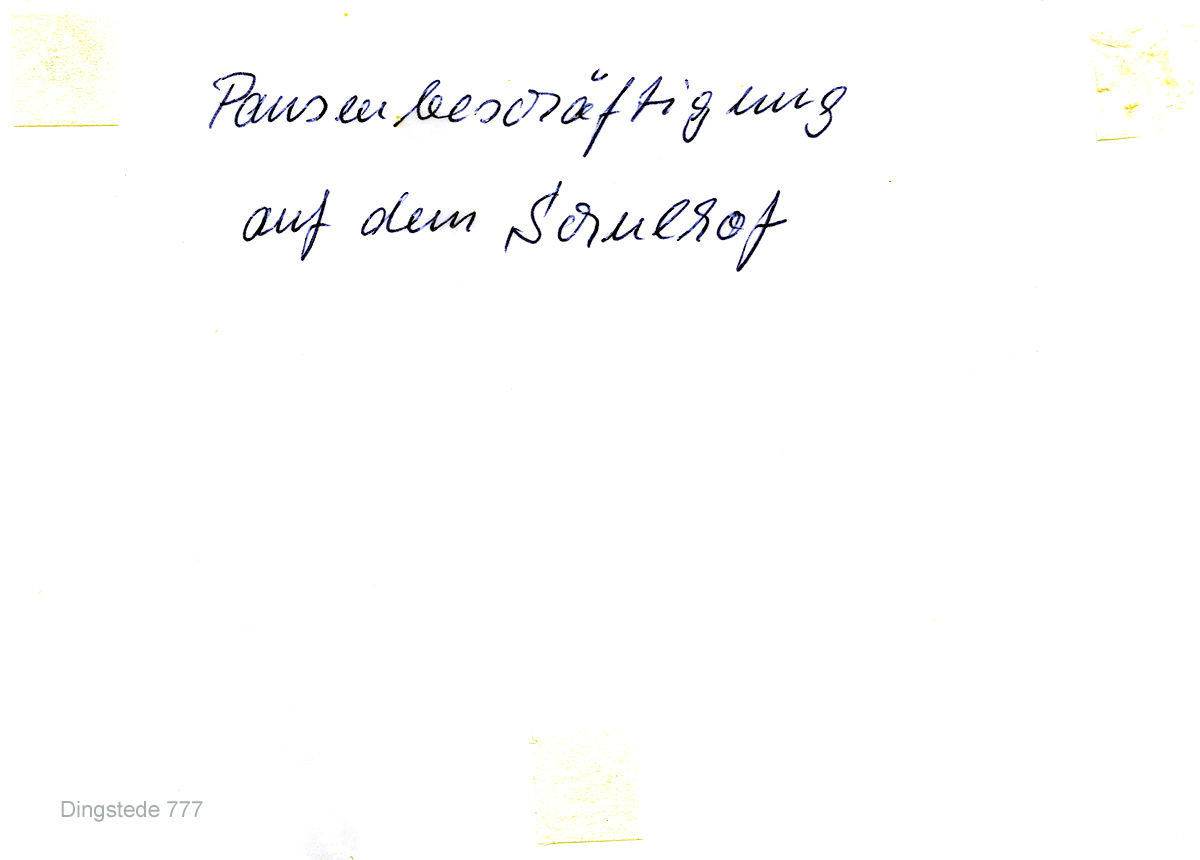 Pausenbeschäftigung
auf dem Schulhof
Dingstede 777